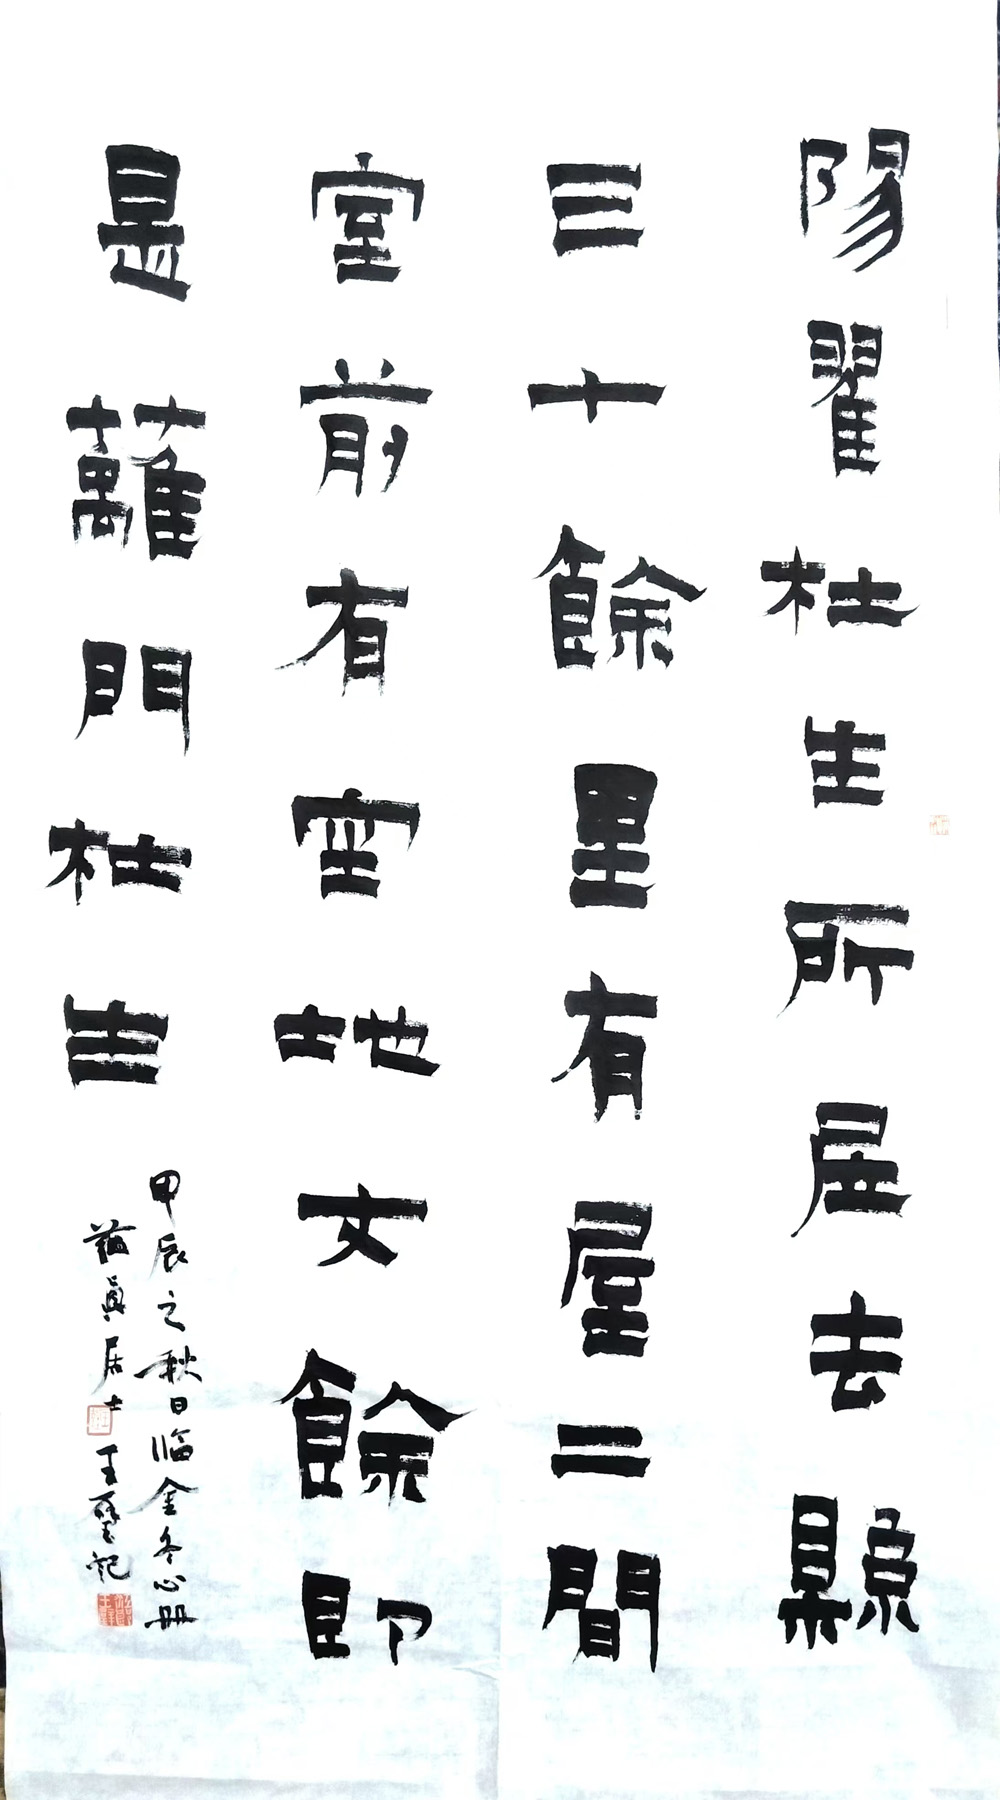 陽翟杜生所居去縣
三十餘里有屋二間
室前有空地丈餘即
是蘺門杜生
甲辰之秋日临金冬心册
眞居士 王記